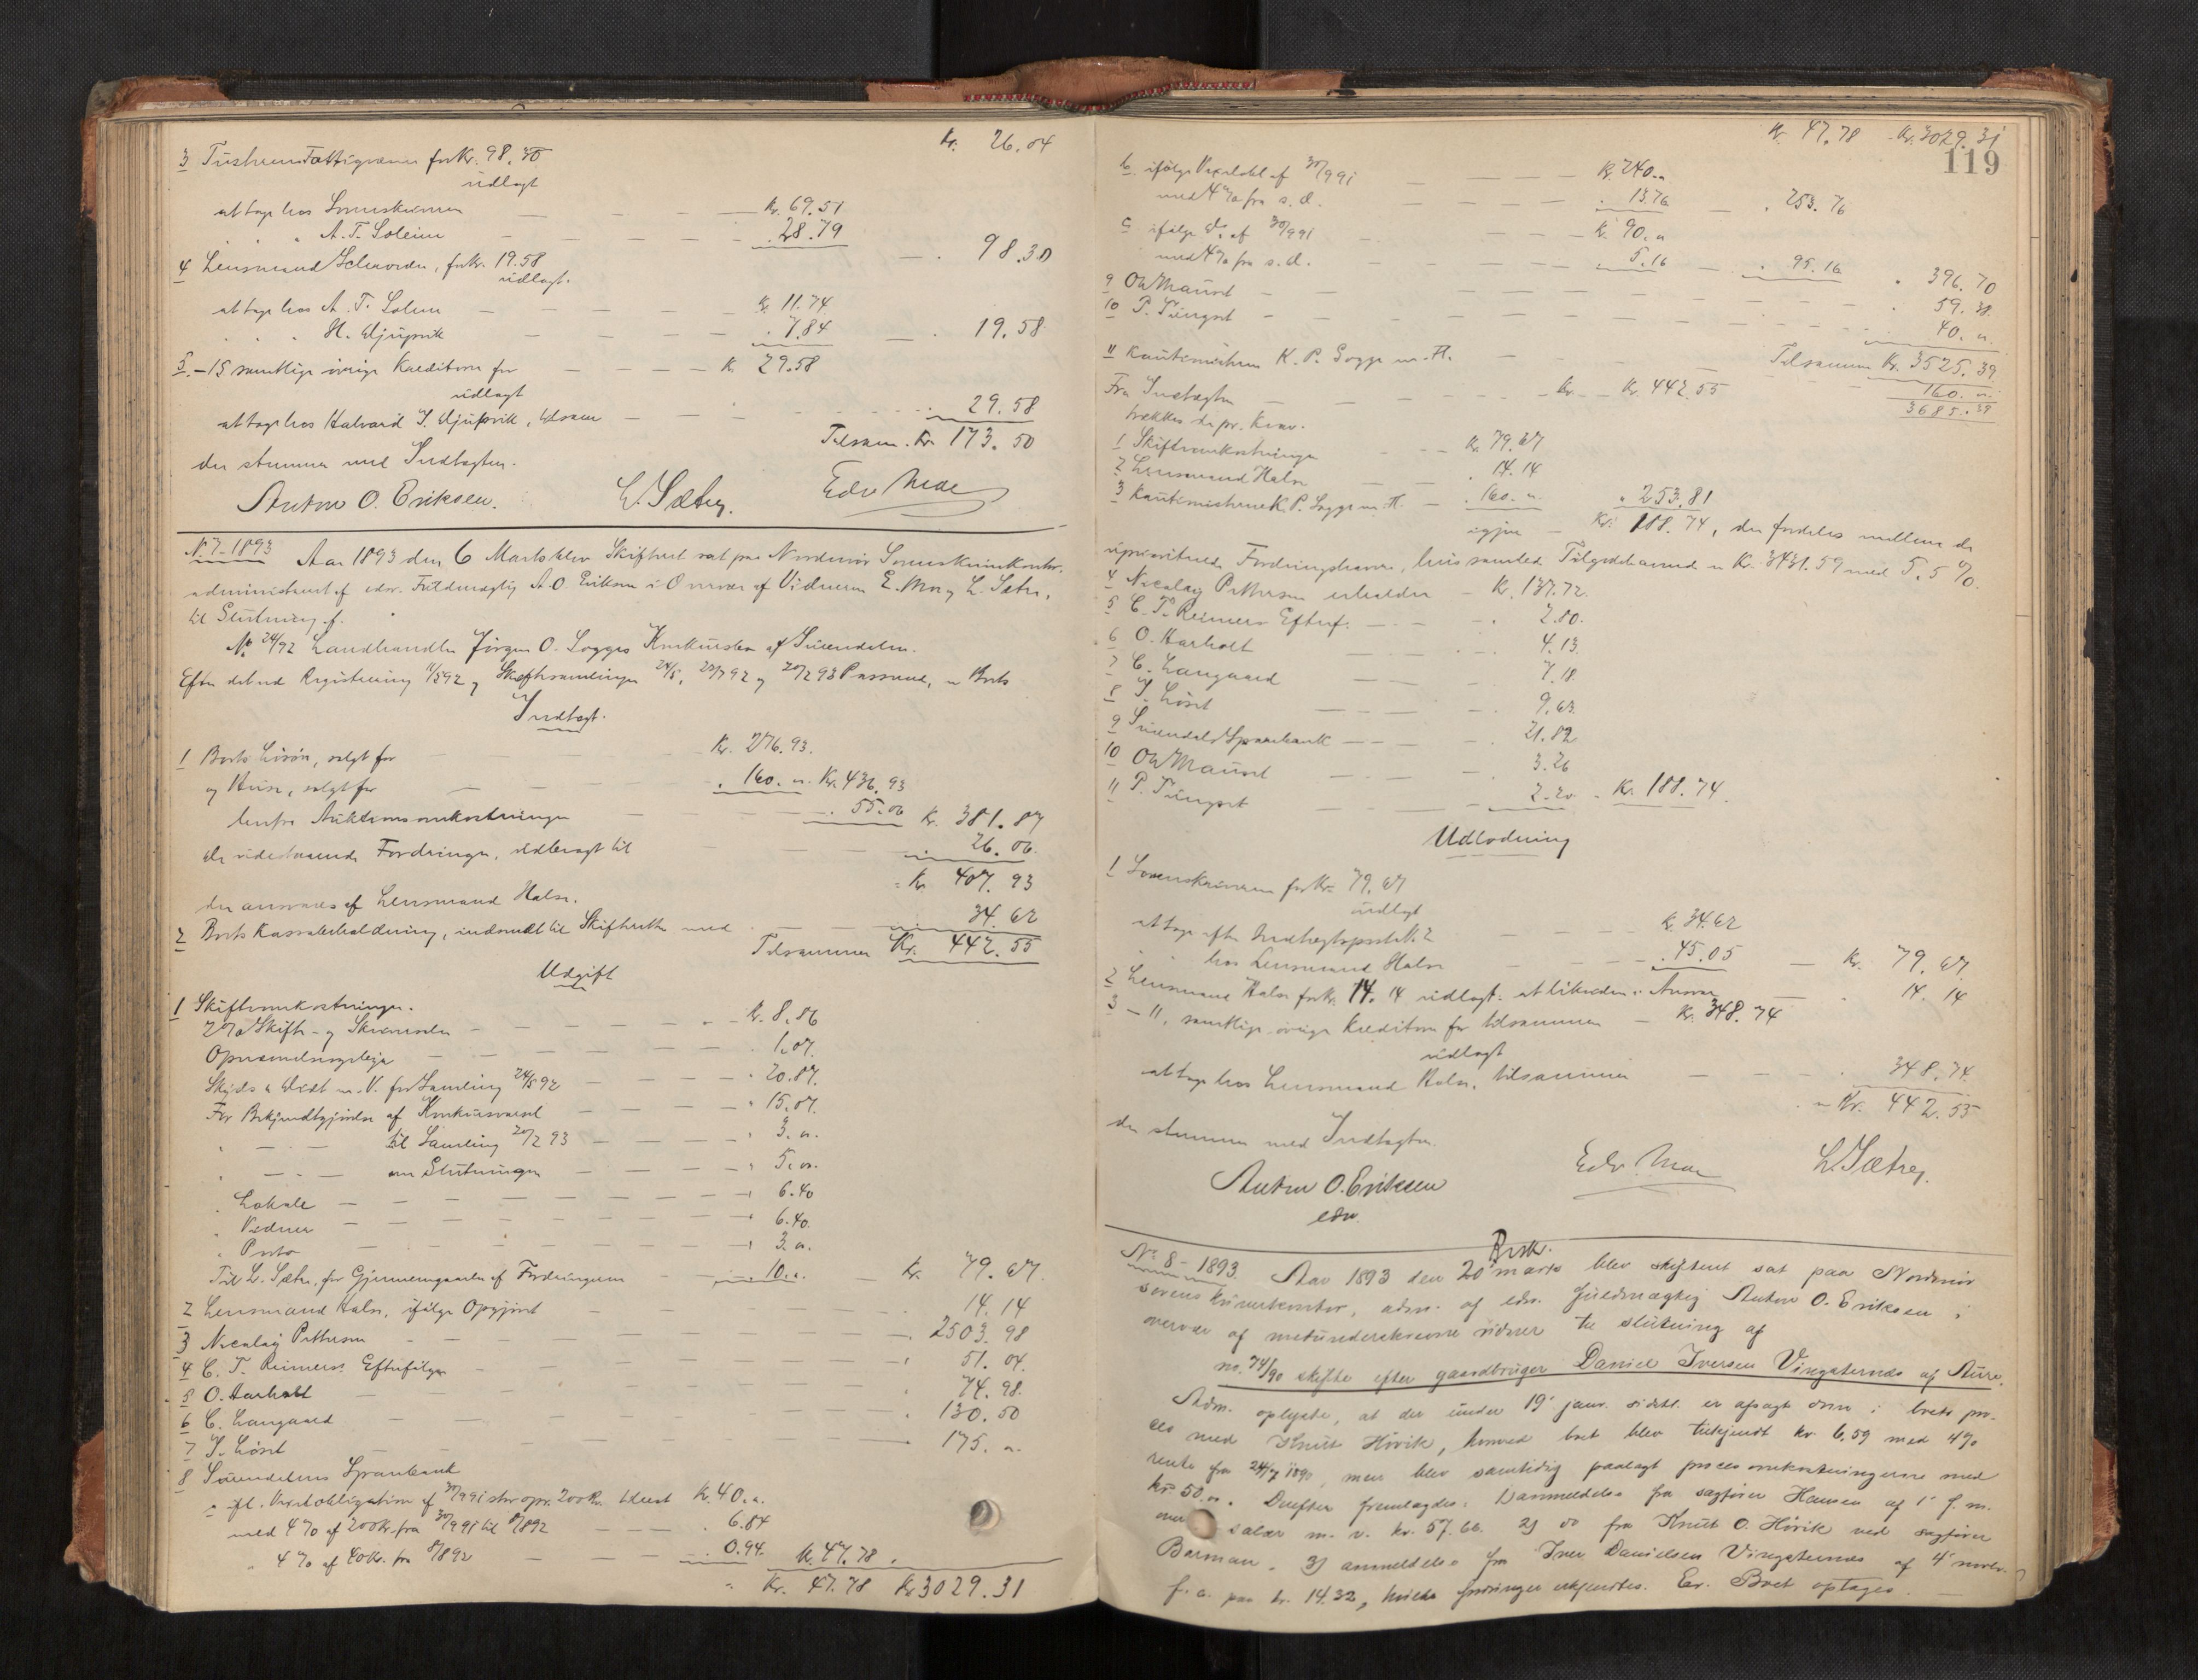 Kr. 26.04
3 Tustrens Fattigvæsen for Kr. 98.30
udlagt
at tage hos Sorenskriveren — Kr. 69.51
" " " A. T. Soleim — " 28.79 — " 98.30
4 Lensmand , for Kr. 19.58
udlagt.
at tage hos A. T. Solem — Kr. 11.74
" " " H. Djupvik — " 7.84 — " 19.58
5.–15 samtlige øvrige Kreditorer for — Kr 29.58
udlagt
at tage hos Halvard J. Djupvik, — 29.58
Tilsam. Kr. 173.50
der stemmer med Indtægten.
Anton O. Eriksen. L. Sætrey. Edv Moe
N. 7–1893 Aar 1893 den 6 Marts blev Skifteret sat paa Nordmør Sorenskriverkontor,
administreret af edsv. Fuldmægtig A. O. Eriksen i Overvær af Vidnerne E. Moe og L. Sætre,
til Slutning af.
No 24/92 Landhandler Jørgen O. Sogges Konkursbo af Surendalen.
Efter det ved Registrering 11/5 92 og Skiftesamlinger 24/5, 92 og 20/2 93 Passerede, er Boets
Indtægt.
1 Boets Løsøre, solgt for — Kr. 276.93.
og Huse, solgt for — " 160. " Kr. 436.93
herfra Auktionsomkostninger — " 55.06 Kr. 381.87
De udestaaende Fordringer, udbragt til — 26.06.
Kr 407.93
der ansvares af Lensmand Halse.
2 Boets Kassabeholdning, indsendt til Skifteretten med — 34.62
Tilsammen Kr. 442.55
Udgift
1 Skifteomkostninger.
2 % Skifte- og Skriversalær — Kr. 8.86
Opnævnelsesgebyr — 1.07.
Skyds & Diæt m. V. for Samling 24/5 92 — " 20.87.
For Bekjendtgjørelse af Konkursvarsel — " 15.07.
" — til Samling 20/2 93 — " 3. "
" — om Slutningen — " 5. "
" Lokale — " 6.40
" Vidner — 6.40.
" Porto — " 3. "
Til L. Sætre, for Gjennemgaaelse af Fordringerne — " 10. " — Kr. 79.67.
2 Lensmand Halse, ifølge Opgjør — " 14.14
3 Nicolay Pettersen — " 2503.98
4 C. T. Reimers Efterfølger — " 51.04.
5 O. Aarholt — " 74.98.
6 C. Langaard — " 130.50
7 J. Løset — 175. "
8 Surendalens Sparebank
a ifl. Vexelobligation af 30/9 91 stor opr. 200 Kr. Kr. 40. "
med 4 % af 200 Kr. fra 30/9 91 til 8/8 92 — " 6.84
" 4 % af 40 Kr. fra 8/8 92 — " 0.94. Kr. 47.78.
Kr. 47.78 Kr 3029.31
Kr. 47.78 Kr. 3029.31
119
b. ifølge Vexelobl. af 30/9 91 — Kr. 240. "
med 4 % fra s. d. — " 13.76 — " 253.76
c ifølge do. af 30/9 91 — Kr. 90. "
med 4 % fra s. d. — " 5.16 — " 95.16 " 396.70
9 Ole Mauset — " 59.38.
10 P. Tungset — " 40. "
Tilsammen Kr. 3525.39
11 Kautionisterne K. P. Sogge m. Fl. — 160. "
3685.39
Fra Indtægten — Kr. — Kr. 442.55
trækkes de pr. Krav.
1 Skifteomkostninger — Kr. 79.67
2 Lensmand Halse — " 14.14
3 Kautionisterne K. P. Sogge m. Fl. — " 160. " " 253.81
igjen — Kr. 188.74, der fordeles mellem de
uprioriterede Fordringshavere, hvis samlede Tilgodehavende er Kr. 3431.59 med 5.5 %.
4 Nicolay Pettersen erholder — Kr. 137.72.
5 C. T. Reimers Efterf. — " 2.80.
6 O. Aarholt — " 4.13.
7 C. Langaard — 7.18.
8 J. Løset — " 9.63.
9 Surendals Sparebank — " 21.82
10 Ole Mauset — " 3.26
11 P. Tungset — " 2.20 " Kr. 188.74.
Udlodning
1 Sorenskriveren for Kr. 79.67
udlagt
at tage efter Indtægtspost N. 2 — Kr. 34.62
" " hos Lensmand Halse — " 45.05 — Kr. 79.67.
2 Lensmand Halse for Kr. 14.14 udlagt: at likvidere i Ansvar — " 14.14
3 – 11, samtlige øvrige Kreditorer for tilsammen — Kr. 348.74
udlagt
at tage hos Lensmand Halse, tilsammen — 348.74.
Kr. 442.55
der stemmer med Indtægten.
Anton O. Eriksen Edv. Moe L. Sætrey.
edsv.
Besk.
No 8–1893. Aar 1893 den 20 marts blev skifteret sat paa Nordmør
sorenskriverkontor, adm. af edsv. fuldmægtig Anton O. Eriksen i
overvær af medunderskrevne vidner til slutning af
no. 74/90 skifte efter gaardbruger Daniel Iversen Vingaternes af Aure.
Adm. oplyste, at der under 19 janr. sidstl. er afsagt dom i boets pro-
ces med Knut Hørvik, hvorved boet blev tilkjendt kr 6,59 med 4 %
rente fra 24/7 1890, men blev samtidig paalagt procesomkostningerne med
kr. 50. ". Derefter fremlagdes: 1) anmeldelse fra sagfører Hansen af 1 f. m.
over salær m. v. kr. 57.66. 2) do fra Knut O. Hørvik ved sagfører
Barman. 3) anmeldelse fra Iver Danielsen Vingaternes af 4 novbr.
f. a. paa kr. 14.32, hvilke fordringer erkjendtes. Er. Boet optages